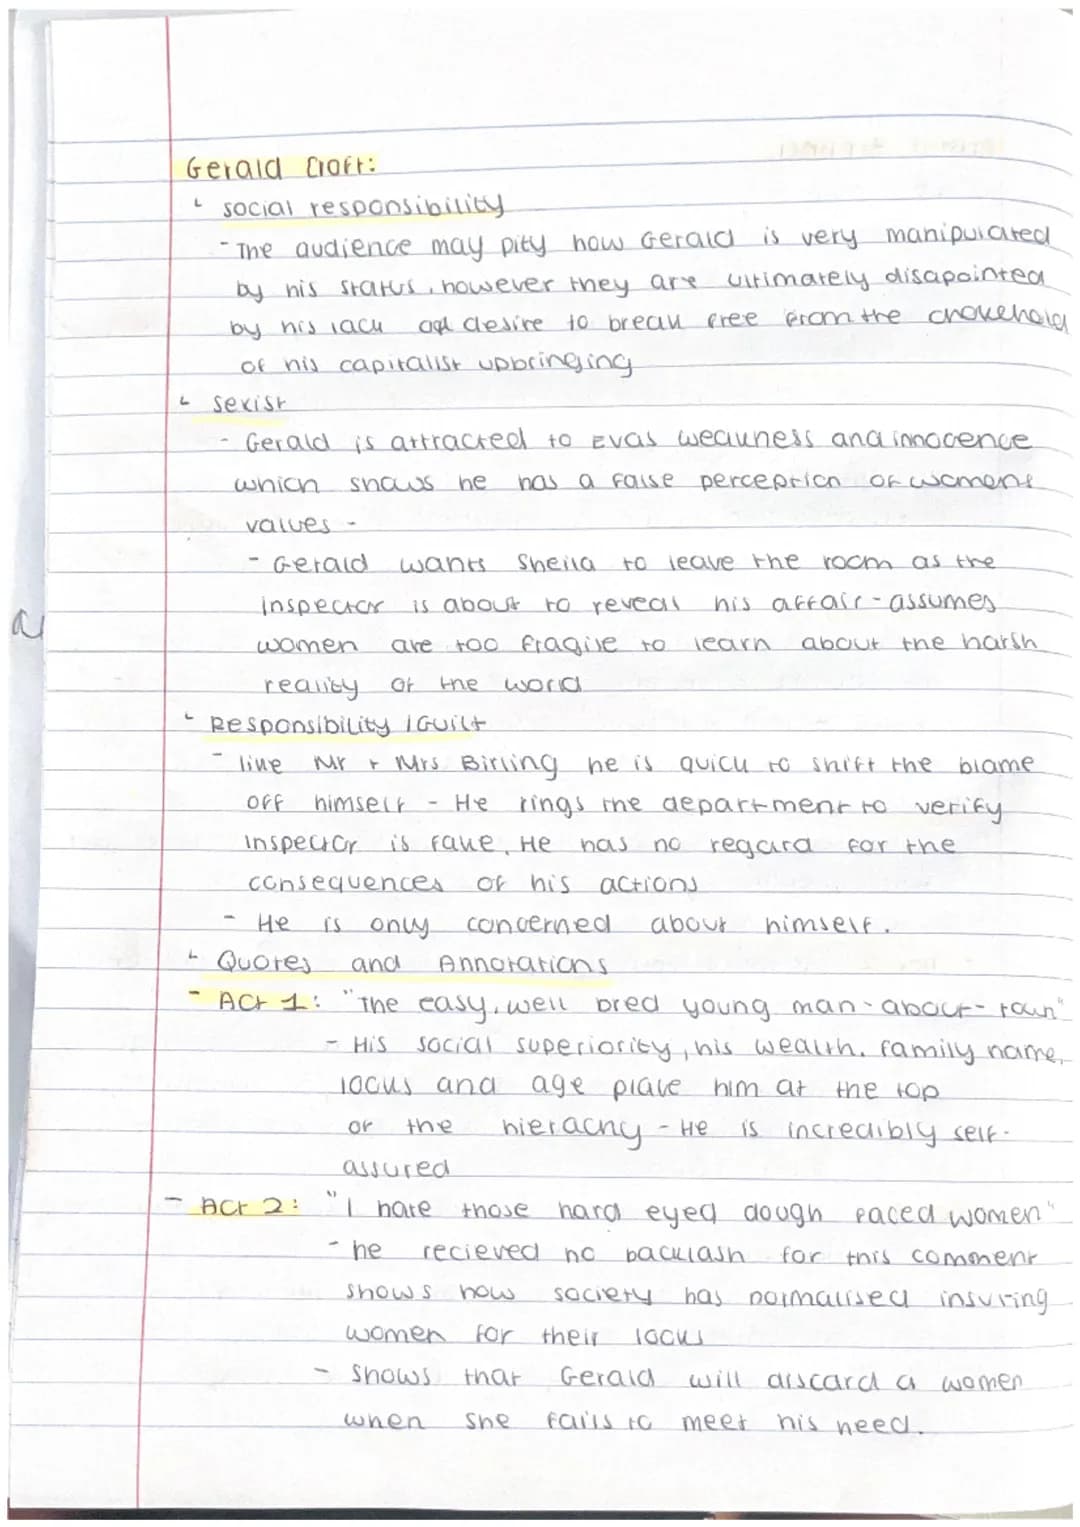 Gerald Croft:
social responsibility
- The audience may pity how Gerald is very manipulated
by his status, however they are ultimately disapointed
by his lack of desire to break free from the chokehold
of his capitalist upbringing
sexist
- Gerald is attracted to Evas weakness and innocence
which shows he has a false perception of womens
values -
- Gerald wants Sheila to leave the room as the
inspector is about to reveal his affair - assumes
women are too fragile to learn about the harsh
reality of the world
Responsibility / Guilt
- like Mr + Mrs Birling he is quick to shift the blame
off himself - He rings the department to verify
Inspector is fake. He has no regard for the
consequences of his actions
- He is only concerned about himself.
Quotes and Annotations
- Act 1: "The easy, well bred young man-about-town"
- His social superiority, his wealth, family name,
looks and age place him at the top
of the hierachy - He is incredibly self-
assured
- Act 2: "I hate those hard eyed dough faced women"
- he recieved no backlash for this comment
shows how society has normalised insuring
women for their looks
- Shows that Gerald will discard a women
when she fails to meet his need.